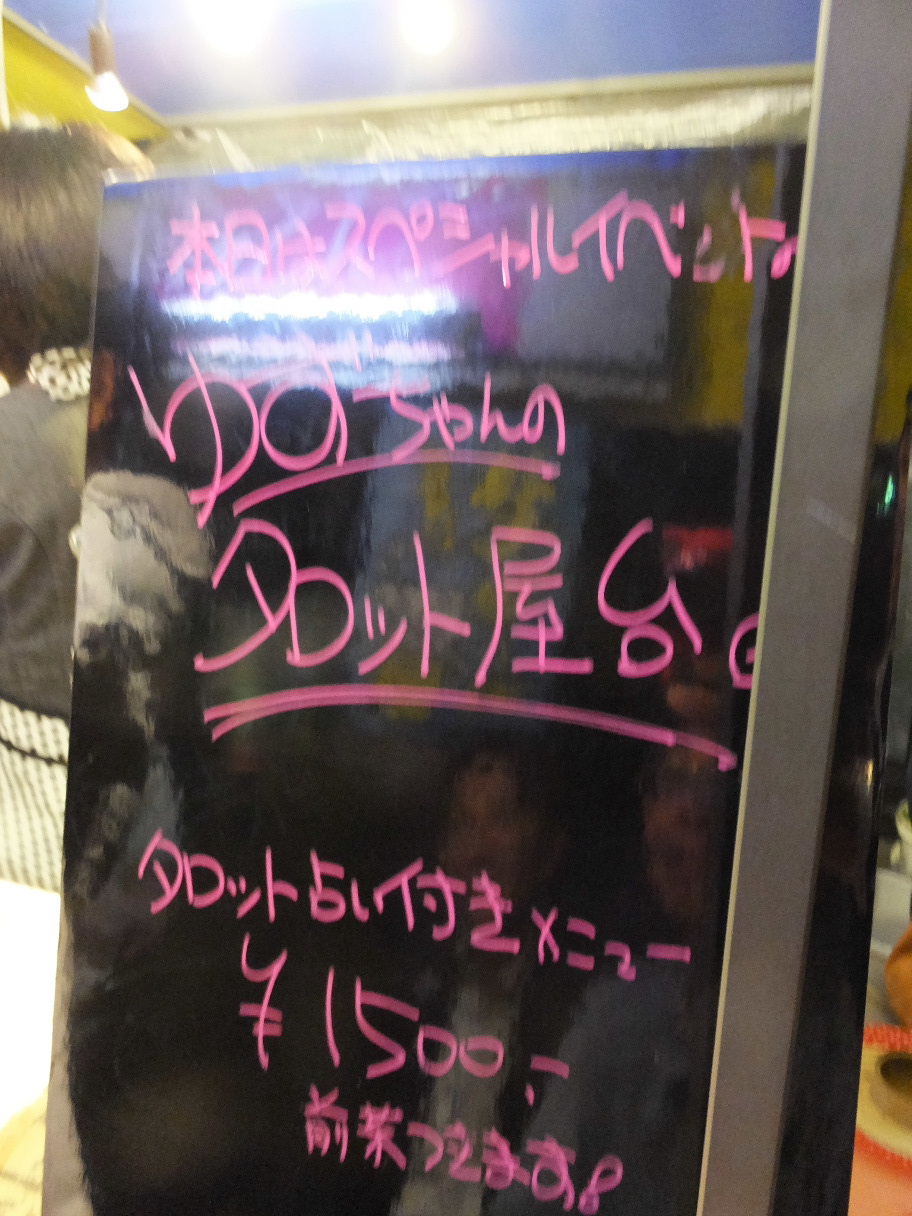 本日はスペシャルイベント。
ゆずちゃんの
タロット屋台
タロット占い付きメニュー
¥1500.-
前菜つきます!